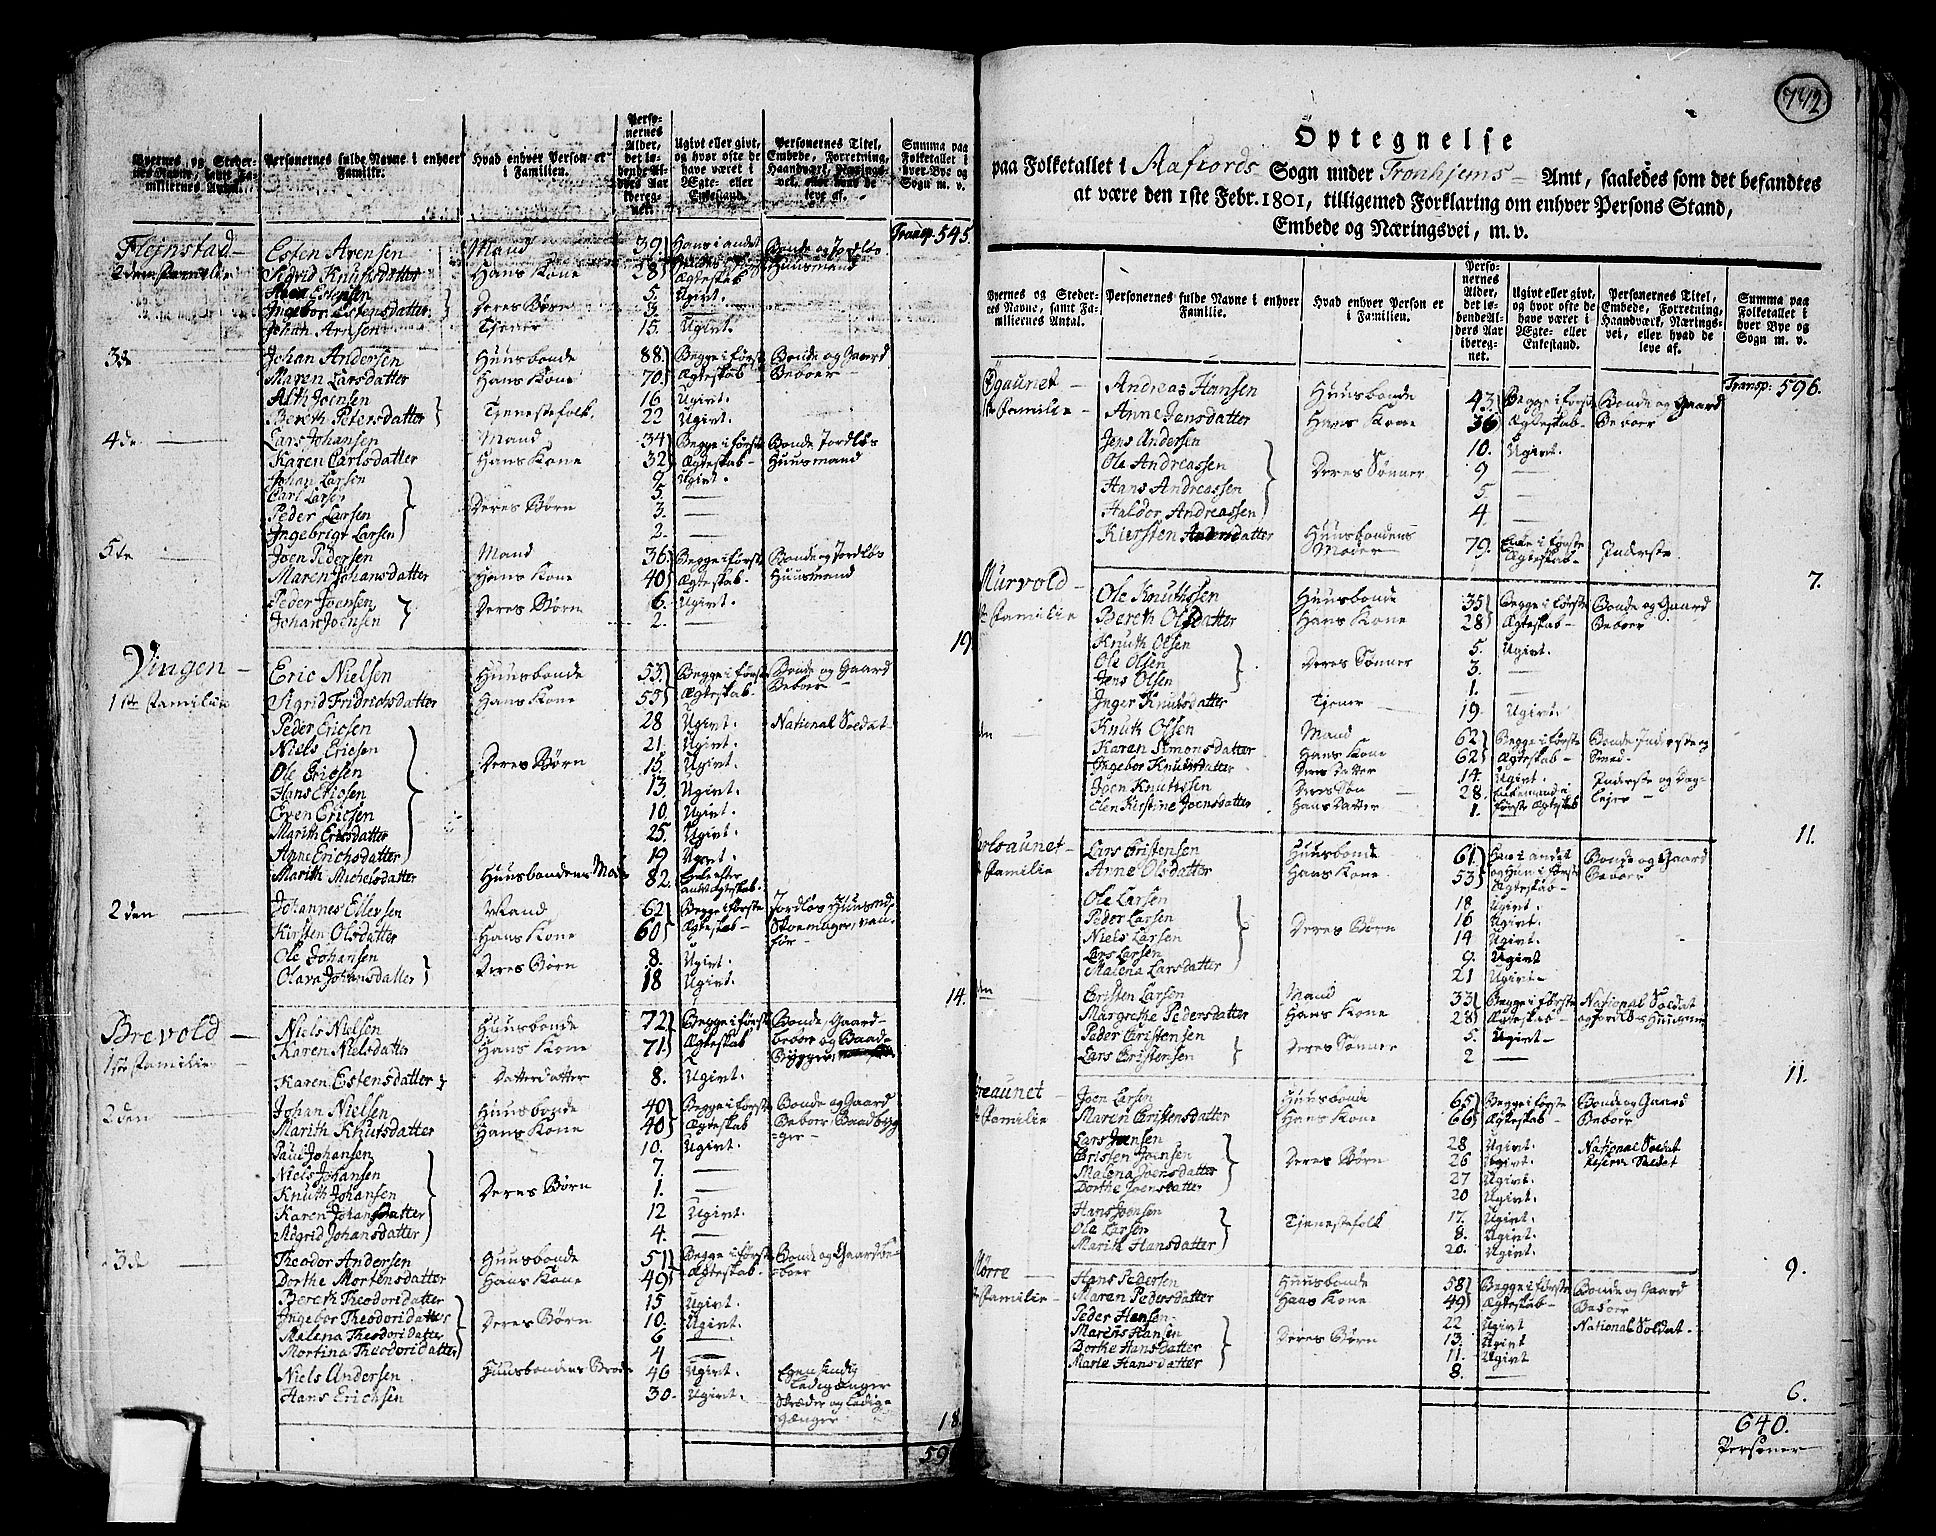 Byernes og Steder-
nes Navne, samt Fa-
miliernes Antal.
Personernes fulde Navne i enhver
Familie.
Hvad enhver Person er
i Familien.
Perso-
nernes
Alder,
det lø-
bende Al-
ders Aar
iberreg-
net.
Ugivt eller givt,
og hvor ofte de
have været i
Ægte- eller
Enkestand.
Personernes Titel,
Embede, Forretning,
Haandværk, Nærings-
vei, eller hvad de
leve af.
Summa paa
Folketallet i
hver Bye og
Sogn m. v.
Transp. 545.
Flejnstad Esten Arensen Mand 39 Hans i andet Bonde og Jordløs
2den Familie Sigrid Knutsdatter Hans Kone 28 Ægteskab Huusmand
Estensen 5. Ugivt.
Ingebor Estensdatter Deres Børn 3. —
Johan Arnsen Tjener 15. Ugivt.
3de Johan Andersen Huusbonde 88 Begge i første Bonde og Gaard
Maren Larsdatter Hans Kone 70. Ægteskab Beboer
Joensen 16 Ugivt.
Bereth Petersdatter Tjenestefolk. 22 Ugivt.
4de Lars Johansen Mand 34 Begge i første Bonde Jordløs
Karen Carlsdatter Hans Kone 32 Ægteskab Huusmand
Johan Larsen 9 Ugivt.
Carl Larsen 5. —
Peder Larsen Deres Børn 3. —
Ingebrigt Larsen 2. —
5te Joen Pedersen Mand 36. Begge i første Bonde og Jordløs
Maren Johansdatter Hans Kone 40 Ægteskab Huusmand
Peder Joensen Deres Børn 6. Ugivt.
Johan Joensen 2. —
19
Vingen Eric Nielsen Huusbonde 53. Begge i første Bonde og Gaard
1ste Familie Sigrid Fridrichsdatter Hans Kone 59 Ægteskab Beboer
Peder Ericsen 28 Ugivt. National Soldat
Niels Ericsen 21. Ugivt.
Ole Ericsen Deres Børn 15. Ugivt.
Hans Ericsen 13 Ugivt.
Even Ericsen 10. Ugivt.
Marith Ericsdatter 25. Ugivt.
Anne Erichsdatter 19 Ugivt.
Marith Michelsdatter Huusbondens Moder 82. Enke efter
andet Ægteskab.
2den Johannes Ellevsen Mand 62 Begge i første Jordløs Huusmd.
Kirsten Olsdatter Hans Kone 60 Ægteskab Skoemager, van-
før
Ole Johansen 8. Ugivt.
Olava Johansdatter Deres Børn 18 Ugivt.
14.
Brevold Niels Nielsen Huusbonde 72 Begge i første Bonde, Gaard-
1ste Familie Karen Nielsdatter Hans Kone 71 Ægteskab beboer og Baad-
Bygger
Karen Estensdatter Datterdatter 8. Ugivt.
2den Johan Nielsen Huusbonde 40 Begge i første Bonde og Gaard
Marith Knutsdatter Hans Kone 40 Ægteskab Beboer Baadbyg
Paul Johansen 10. Ugivt. =ger
Niels Johansen 7. —
Knuth Johansen Deres Børn 1. —
Karen Johansdatter 12 Ugivt.
Sigrid Johansdatter 4. —
3de Theodor Andersen Huusbonde 51 Begge i første Bonde og Gaardbe-
Dorthe Mortensdatter Hans Kone 49 Ægteskab. boer
Bereth Theodorsdatter 15 Ugivt.
Ingebor Theodorsdatter Deres Børn 10. Ugivt.
Malena Theodorsdatter 6 —
Mortina Theodorsdatter 4 —
Niels Andersen Huusbondens Broder 46 Ugivt.
Ledigænger
Hans Erichsen 30. Ugivt. Skræder og Ledig-
gænger
18
59
742
Optegnelse
paa Folketallet i Aafiords Sogn under Tronhjems Amt, saaledes som det befandtes
at være den 1ste Febr. 1801, tilligemed Forklaring om enhver Persons Stand,
Embede og Næringsvei, m. v.
Byernes og Steder-
nes Navne, samt Fa-
miliernes Antal.
Personernes fulde Navne i enhver
Familie.
Hvad enhver Person er
i Familien.
Perso-
nernes
Alder,
det lø-
bende Al-
ders Aar
iberreg-
net.
Ugivt eller givt,
og hvor ofte de
have været i
Ægte- eller
Enkestand.
Personernes Titel,
Embede, Forretning,
Haandværk, Nærings-
vei, eller hvad de
leve af.
Summa paa
Folketallet i
hver Bye og
Sogn m. v.
Transp: 596.
Øgaunet Andreas Hansen Huusbonde 43. Begge i første Bonde og Gaard
1ste Familie Anne Jensdatter Hans Kone 36 Ægteskab Beboer
Jens Andersen 10. Ugivt.
Ole Andreassen Deres Sønner 9 —
Hans Andreassen 5. —
Haldor Andreassen 4. —
Kiersten Andersdatter Huusbondens
Moder 79. Enke i første
Ægteskab Inderste
7.
Murvold Ole Knuthsen Huusbonde 35 Begge i første Bonde og Gaard
Familie Bereth Olsdatter Hans Kone 28 Ægteskab Beboer
Knuth Olsen 5. Ugivt.
Ole Olsen Deres Sønner 3. —
Jens Olsen 1. —
Inger Knutsdatter Tjener 19. Ugivt.
den Knuth Olsen Mand 62 Begge i første Bonde Inderste og
Karen Simonsdatter Hans Kone 62 Ægteskab Smed.
Ingebor Knutsdatter Deres Datter 14. Ugivt.
Joen Knuthsen Deres Søn 28. Enkemand e. Inderste og Dag-
Elen Kirstine Joensdatter Hans Datter 1. første Ægteskab lejer
11.
Lars Cristensen Huusbonde 61 Han i andet Bonde og Gaard
Familie Anne Olsdatter Hans Kone 53 og Hun i første Beboer
Ægteskab
Ole Larsen 18 Ugivt.
Peder Larsen 16 Ugivt.
Niels Larsen Deres Børn 14 Ugivt.
Lars Larsen 9. Ugivt
Malena Larsdatter 21 Ugivt
den Cristen Larsen Mand 33 Begge i første National Soldat
Margrethe Pedersdatter Hans Kone 28 Ægteskab og Jordløs Huusmand
Peder Cristensen 5. Ugivt
Lars Cristensen Deres Sønner 2 —
11.
Joen Larsen Huusbonde 65 Begge i første Bonde og Gaard
Familie Maren Cristensdatter Hans Kone 66 Ægteskab Beboer
Lars Joensen 28 Ugivt. National Soldat
Cristen Joensen Deres Børn 26 Ugivt. Reserve Soldat
Malena Joensdatter 27 Ugivt.
Dorthe Joensdatter 20 Ugivt.
Hans Joensen 17. Ugivt.
Ole Larsen Tjenestefolk 8. Ugivt.
Marith Hansdatter 20. Ugivt
9.
Hans Pedersen Huusbonde 58 Begge i første Bonde og Gaard
Familie Maren Pedersdatter Hans Kone 49 Ægteskab Beboer
Peder Hansen 22 Ugivt National Soldat
Marens Hansen Deres Børn 13. Ugivt
Dorthe Hansdatter 11. Ugivt
Marie Hansdatter 8. —
6.
640.
Personer